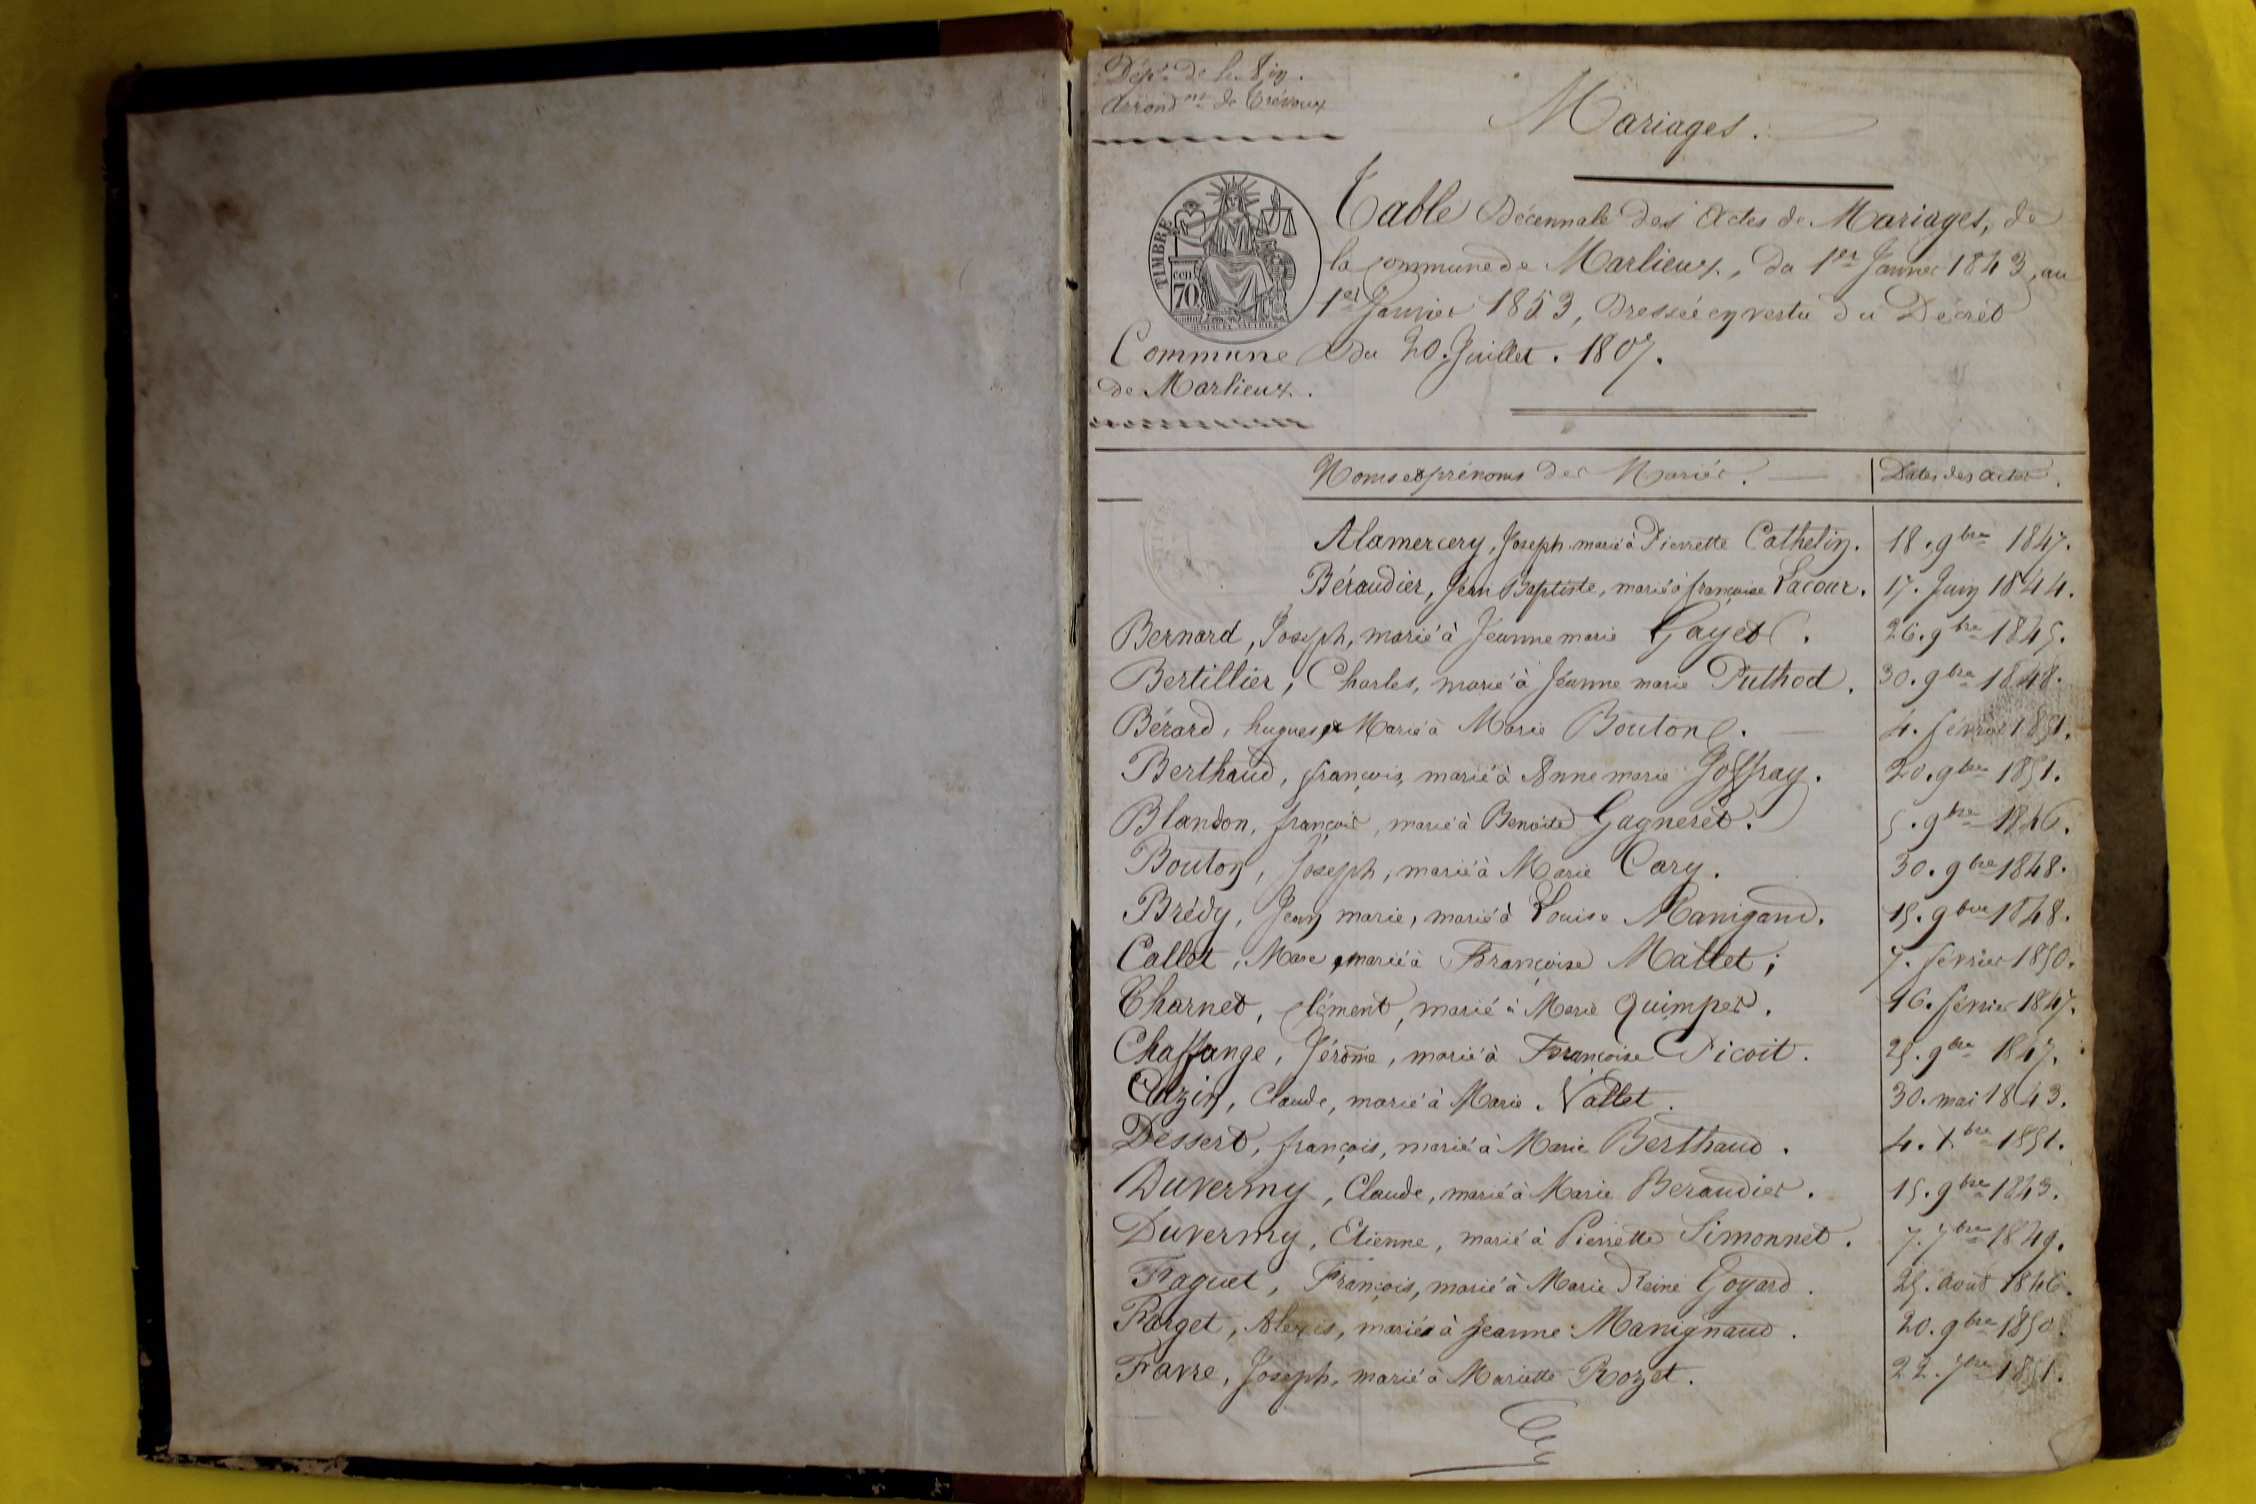 Dépt. de l'Ain.
Arrond.nt de Trévoux
Mariages.
TIMBRE
cen
70
Table Décennale des Actes de Mariages, de
la Commune de Marlieux, du 1er Janvier 1843, au
1er Janvier 1853, Dressée en vertu du Décret
Du 20. Juillet. 1807.
Commune
de Marlieux.
Noms et prénoms des Mariés. Dates des actes.
Alamercery, Joseph marié à Pierrette Cathelin. 18. 9bre 1847.
Béraudier, Jean Baptiste, marié à françoise Lacour. 17. Juin 1844.
Bernard, Joseph, marié à Jeanne marie Gayet. 26. 9bre 1845.
Bertillier, Charles, marié à Jeanne marie Puthod. 30. 9bre 1848.
Bérard, hugues, Marié à Marie Bouton. 4. février 1851.
Berthaud, françois, marié à Anne marie Joffray. 20. 9bre 1851.
Blandon, françois, marié à Benoite Gagneret. 5. 9bre 1846.
Bouton, Joseph, marié à Marie Cary. 30. 9bre 1848.
Brédy, Jean marie, marié à Louise Manigand. 15. 9bre 1848.
Callet, Marc, marié à Françoise Mallet; 7. février 1850.
Charnet, Clément, marié à Marie Quimper. 16. février 1847.
Chaffange, Jérôme, marié à Françoise Picoit. 25. 9bre 1847.
Cuzin, Claude, marié à Marie Vallet. 30. mai 1843.
Dessert, françois, marié à Marie Berthaud. 4. Xbre 1851.
Duvermy, Claude, marié à Marie Beraudier. 15. 9bre 1843.
Duvermy, Etienne, marié à Pierrette Simonnet. 7. 7bre 1849.
Faguet, François, marié à Marie Reine Goyard. 25. août 1846.
Farget, Alexis, marié à Jeanne Manignaud. 20. 9bre 1850.
Favre, Joseph, marié à Mariette Rozet. 22. 7bre 1851.